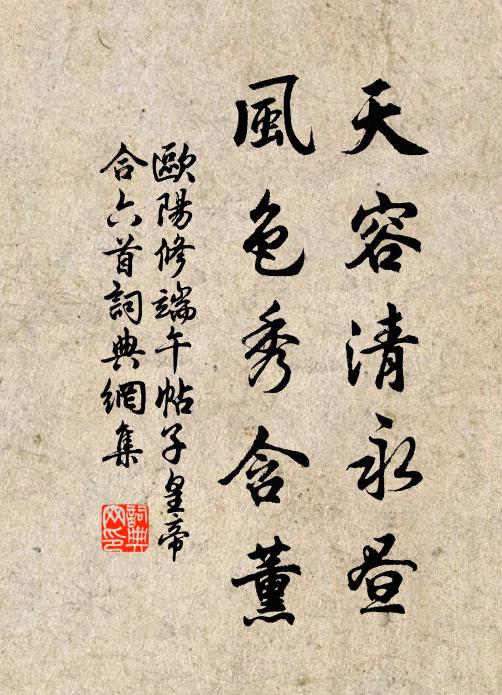 天容清永昼
風色秀含薰
歐陽修端午帖子皇帝
合六首詞典網集
詞典网印